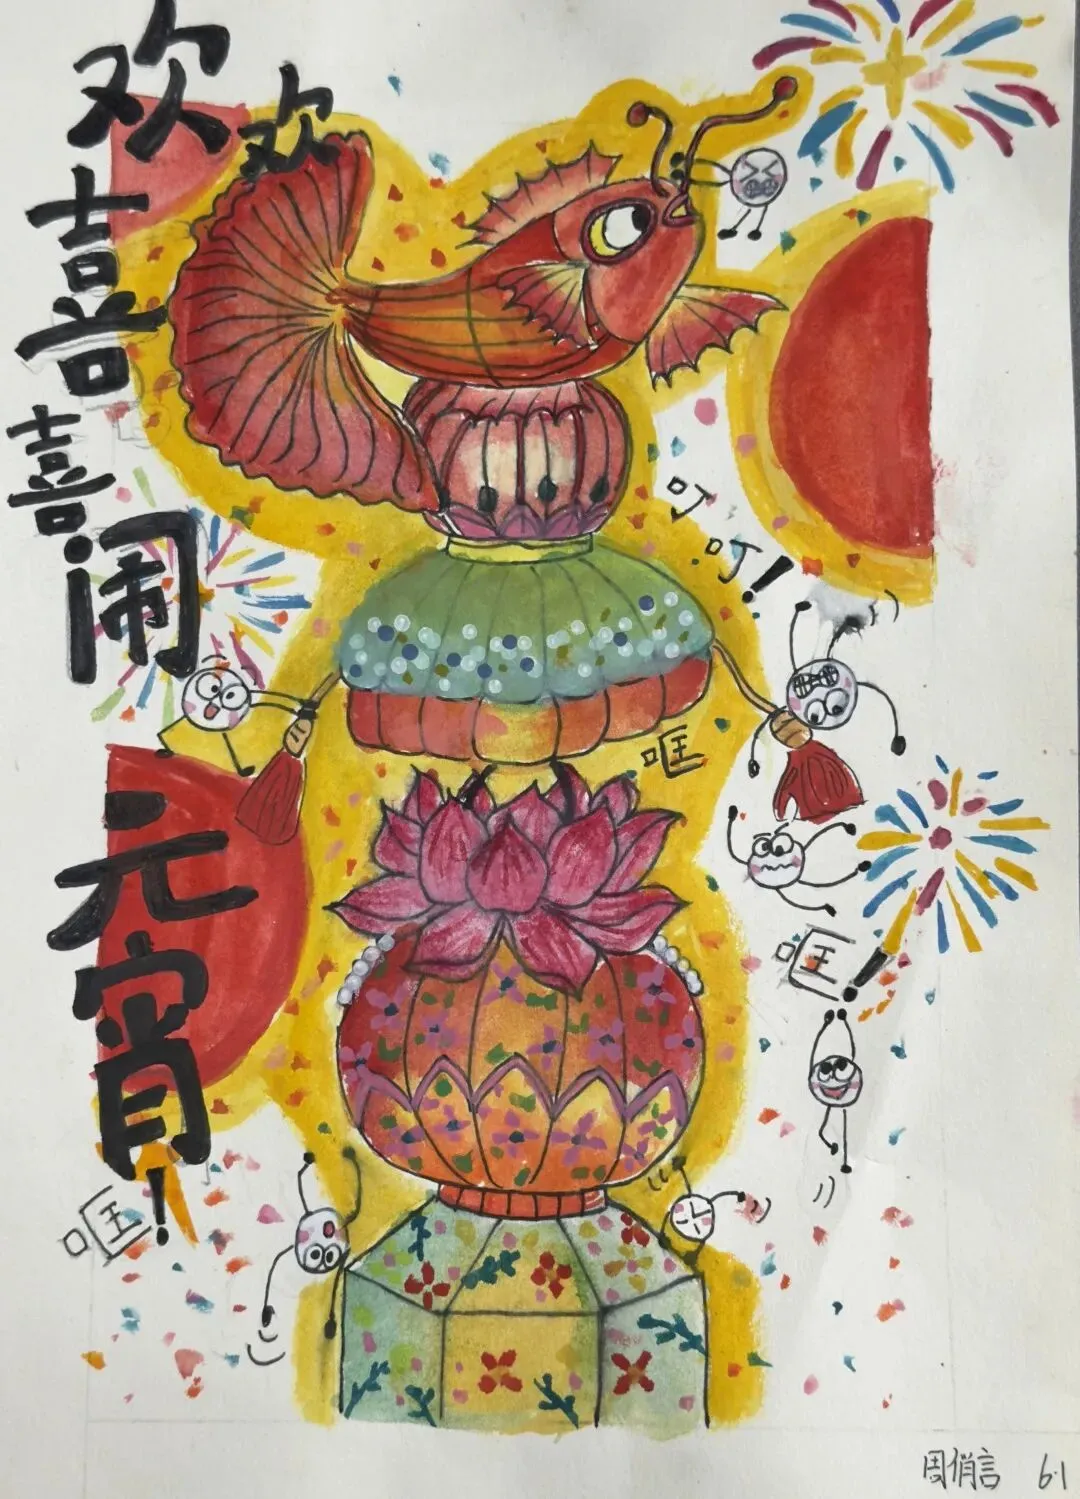 欢欢
喜喜
闹
元宵!
叮
叮!
哐
哐!
哐!
周俏言 6.1